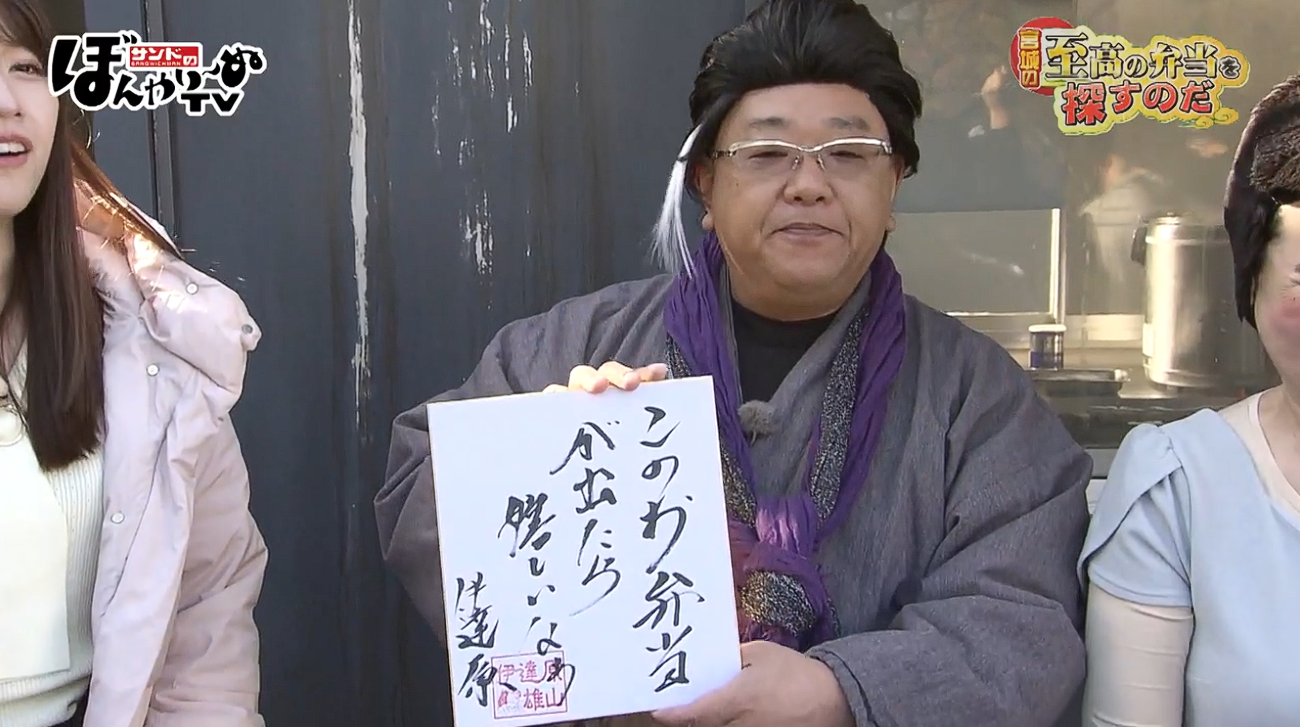 サンドの
SANDWICHMANの
ぼんやり〜ぬTV
宮城の
至高の弁当を
探すのだ
このお弁当
が出たら
嬉しいなぁ
伊達原
伊達原
雄山